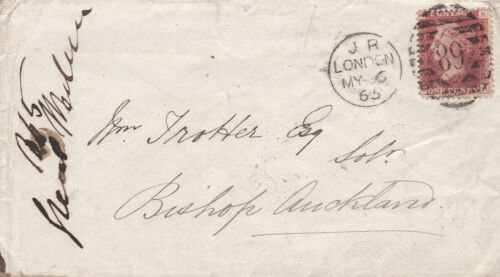 J R
LONDON
MY 6
65
89
POSTAGE
ONE PENNY
Wm Trotter Esq
Solr.
Bishop Auckland.